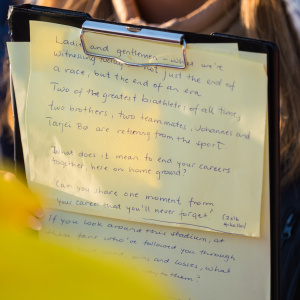 Ladies
and gentlemen - what we're
witnessing today is not just the end of
a race, but the end of an era.
Two of the greatest biathletes of all time,
two brothers, two teammates, Johannes and
Tarjei Bø are retiring from the sport.
What does it mean to end your careers
together, here on home ground?
Can you share one moment from
your career that you'll never forget?
If you look around this stadium, at
fans who've followed you through
wins and losses, what
them?